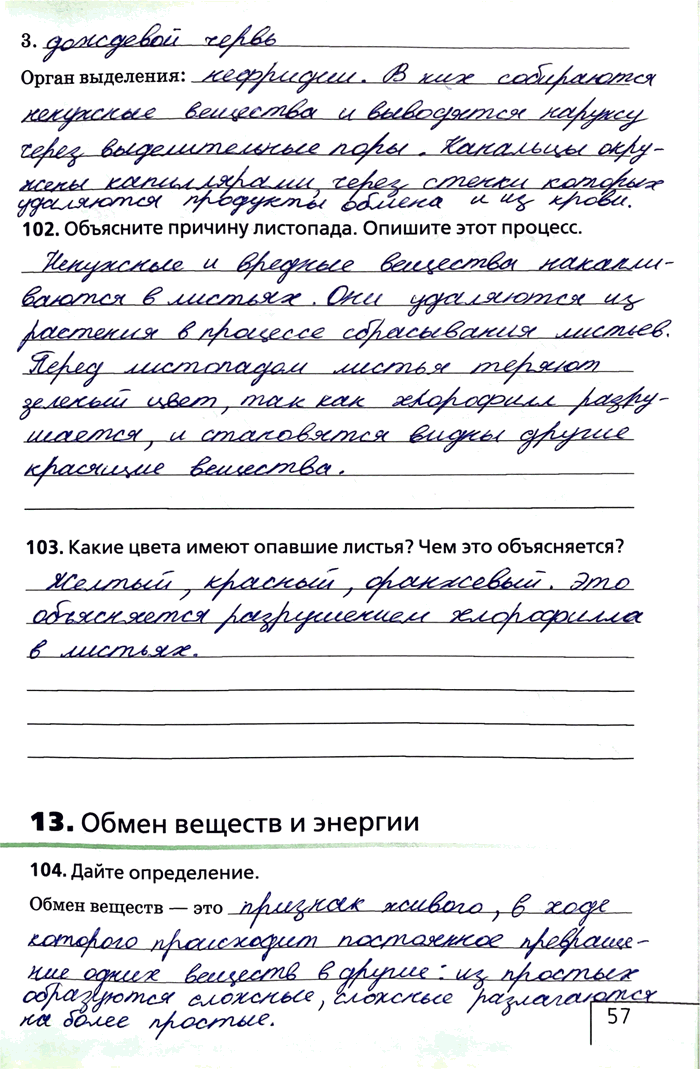 3. дождевой червь
Орган выделения: нефридии. В них собираются
ненужные вещества и выводятся наружу
через выделительные поры. Канальцы окру-
жены капиллярами, через стенки которых
удаляются продукты обмена и из крови.
102. Объясните причину листопада. Опишите этот процесс.
Ненужные и вредные вещества накапли-
ваются в листьях. Они удаляются из
растения в процессе сбрасывания листьев.
Перед листопадом листья теряют
зеленый цвет, так как хлорофилл разру-
шается, и становятся видны другие
красящие вещества.
103. Какие цвета имеют опавшие листья? Чем это объясняется?
Желтый, красный, оранжевый. Это
объясняется разрушением хлорофилла
в листьях.
13. Обмен веществ и энергии
104. Дайте определение.
Обмен веществ — это признак живого, в ходе
которого происходит постоянное превраще-
ние одних веществ в другие: из простых
образуются сложные, сложные разлагаются
на более простые.
57